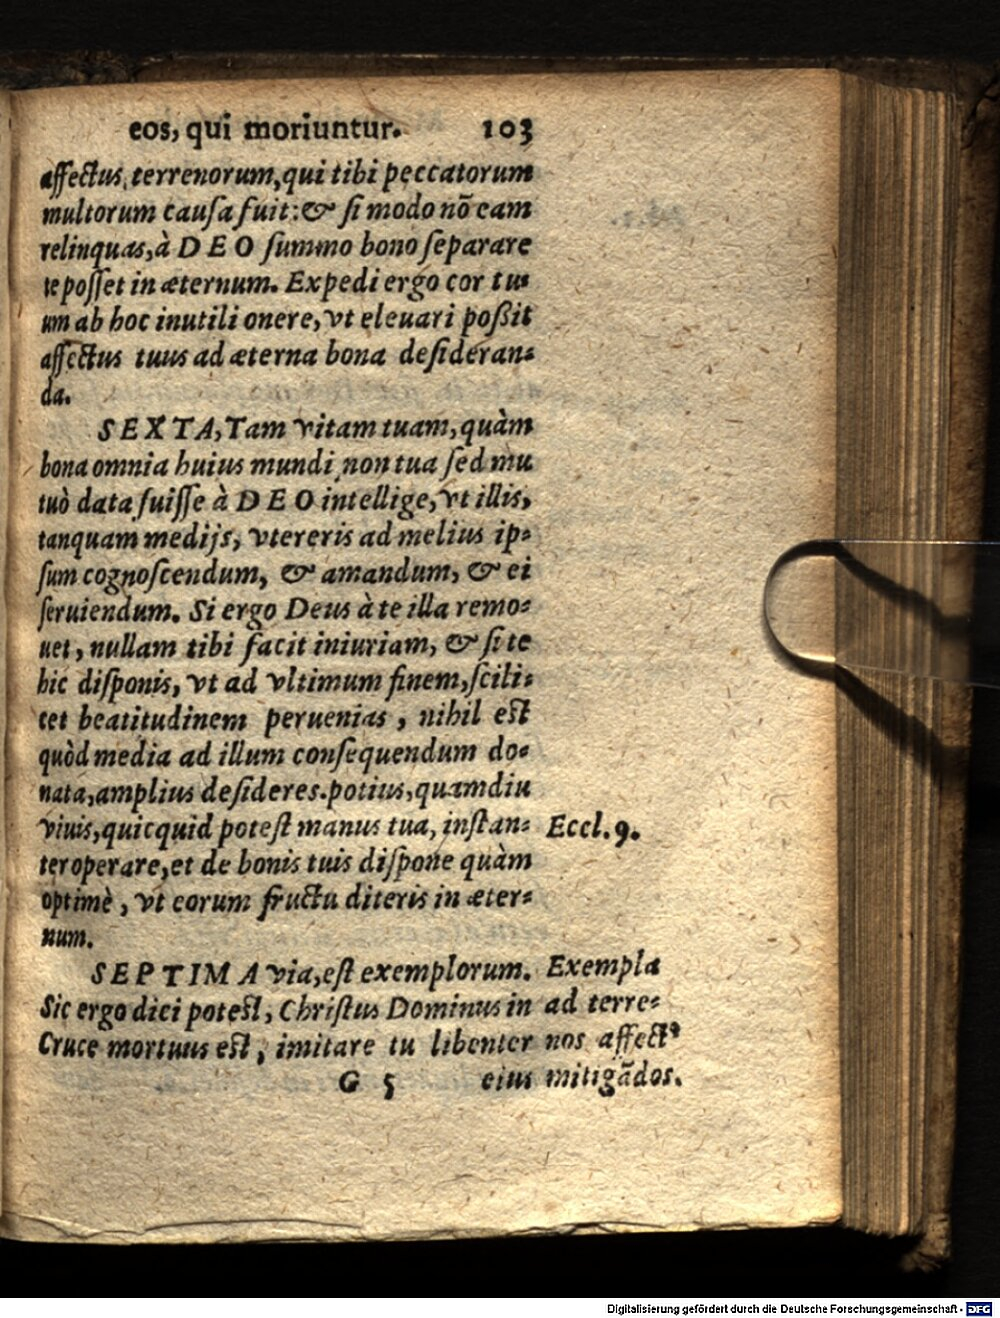 eos, qui moriuntur. 103
affectus, terrenorum, qui tibi peccatorum
multorum cauſa fuit: & ſi modo nõ eam
relinquas, à DEO ſummo bono ſeparare
te poſſet in æternum. Expedi ergo cor tu⸗
um ab hoc inutili onere, vt eleuari poßit
affectus tuus ad æterna bona deſideran⸗
da.
SEXTA, Tam vitam tuam, quàm
bona omnia huius mundi non tua ſed mu
tuò data fuiſſe à DEO intellige, vt illis,
tanquam medijs, vtereris ad melius ip⸗
ſum cognoſcendum, & amandum, & ei
ſeruiendum. Si ergo Deus à te illa remo⸗
uet, nullam tibi facit iniuriam, & ſi te
hic diſponis, vt ad vltimum finem, ſcili⸗
cet beatitudinem peruenias, nihil eſt
quòd media ad illum conſequendum do⸗
nata, amplius deſideres. potius, quamdiu
viuis, quicquid poteſt manus tua, inſtan⸗
ter operare, et de bonis tuis diſpone quàm
optimè, vt eorum fructu diteris in æter⸗
num.
SEPTIMA via, eſt exemplorum.
Sic ergo dici poteſt, Chriſtus Dominus in
Cruce mortuus eſt, imitare tu libenter
G 5 eius
Eccl. 9.
Exempla
ad terre⸗
nos affectꝰ
mitigãdos.
Digitalisierung gefördert durch die Deutsche Forschungsgemeinschaft - DFG